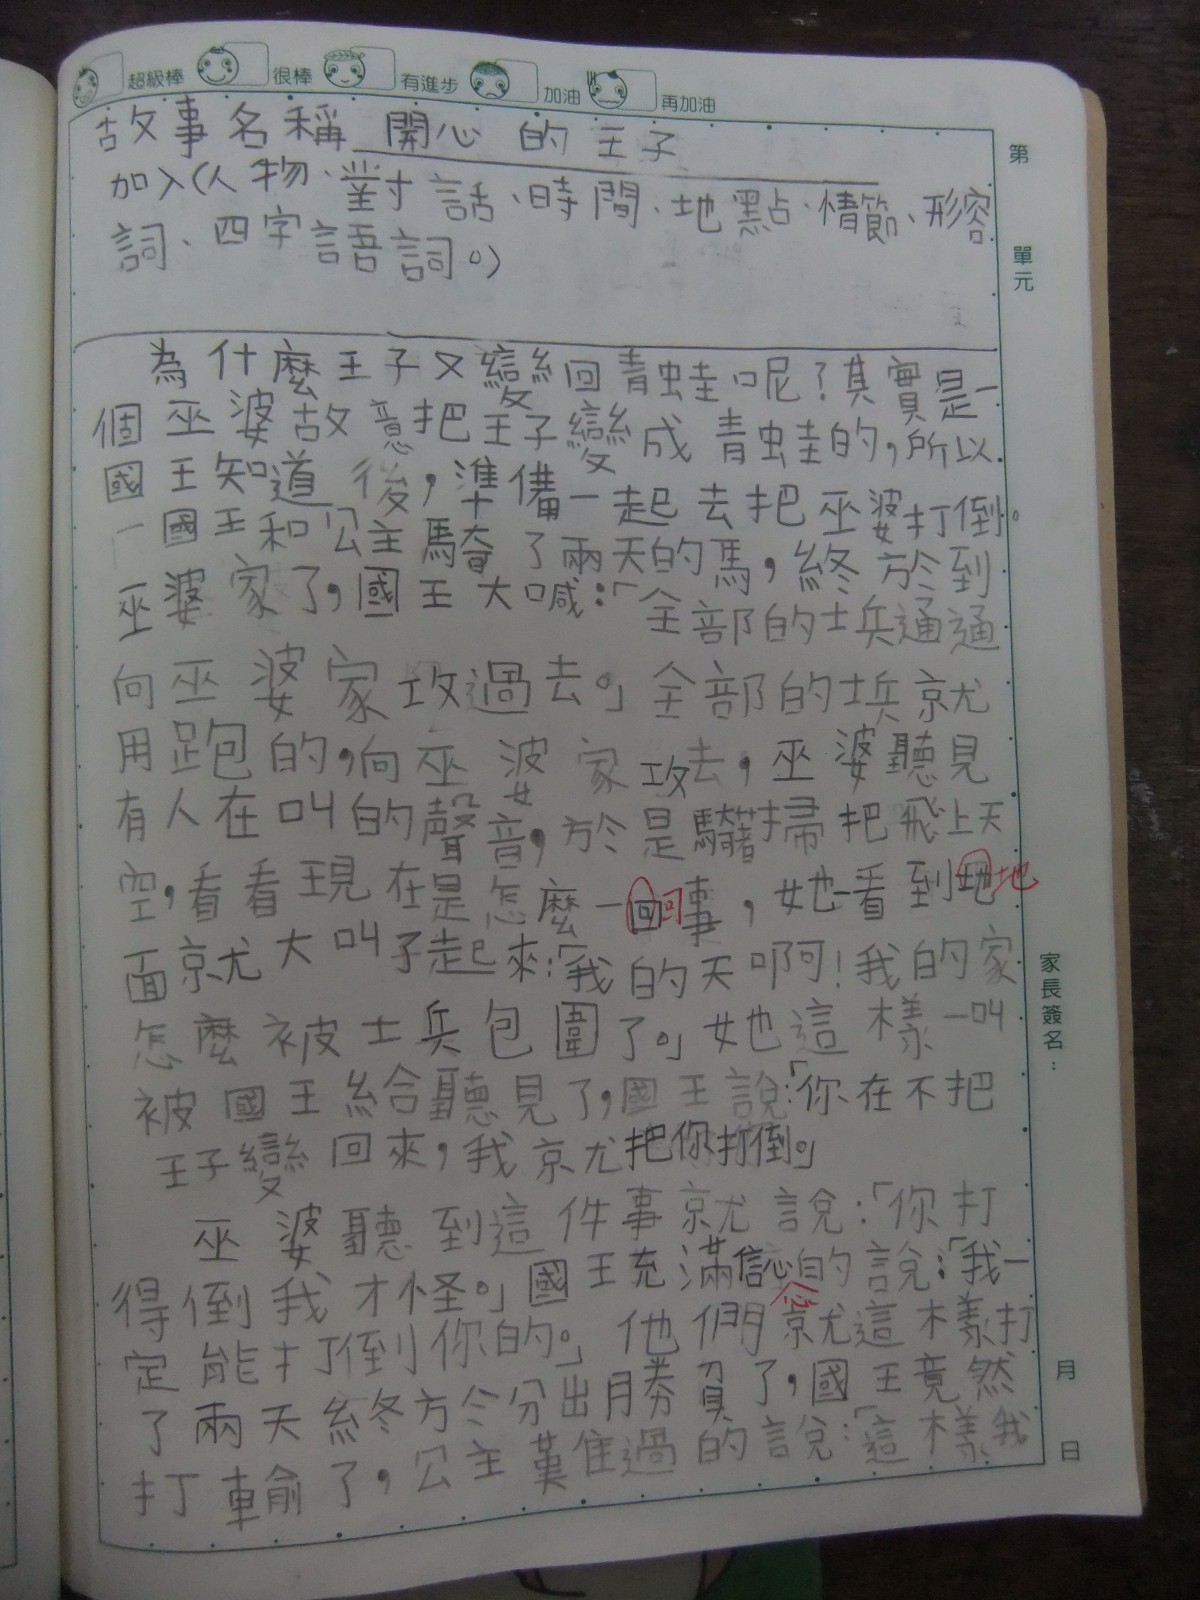 超級棒 很棒 有進步 加油 再加油
故事名稱 開心的王子
加入(人物、對話、時間、地點、情節、形容
詞、四字語詞。)
第 單元
為什麼王子又變回青蛙呢?其實是一
個巫婆故意把王子變成青蛙的,所以
國王知道後,準備一起去把巫婆打倒。
國王和公主騎了兩天的馬,終於到
巫婆家了,國王大喊:「全部的士兵通通
向巫婆家攻過去。」全部的士兵就
用跑的,向巫婆家攻去,巫婆聽見
有人在叫的聲音,於是騎著掃把飛上天
空,看看現在是怎麼一回事,她一看到地
面就大叫了起來:「我的天啊!我的家
怎麼被士兵包圍了。」她這樣一叫
被國王給聽見了,國王說:「你在不把
王子變回來,我就把你打倒。」
巫婆聽到這件事就說:「你打
得倒我才怪。」國王充滿信心的說:「我一
定能打倒你的。」他們就這樣打
了兩天終於分出勝負了,國王竟然
打輸了,公主難過的說:「這樣我
家長簽名:
月 日